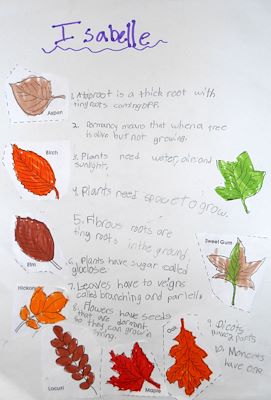 Isabelle
1. A taproot is a thick root with
tiny roots coming off.
Aspen
2. Dormancy means that when a tree
is alive but not growing.
Birch
3. Plants need water, air and
sunlight.
4. Plants need space to grow.
5. Fibrous roots are
tiny roots in the ground.
Elm
Sweet Gum
6. Plants have sugar called
gluclose.
7. Leaves have to veigns
called branching and parlell.
Hickory
8. Flowers have seeds
that are dormant
so they can grow in
spring.
9. Dicots
have parts
10. Monocots
have one
Oak
Locust
Maple